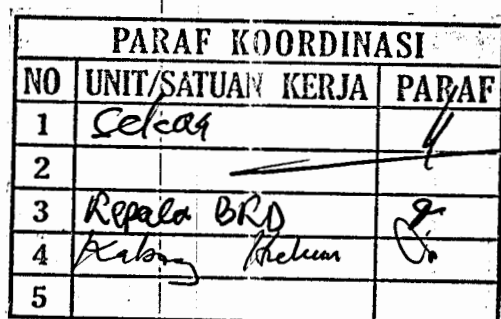 PARAF KOORDINASI
NO UNIT/SATUAN KERJA PARAF
1
2
3 Kepala BRD
4 Kabag Hukum
5